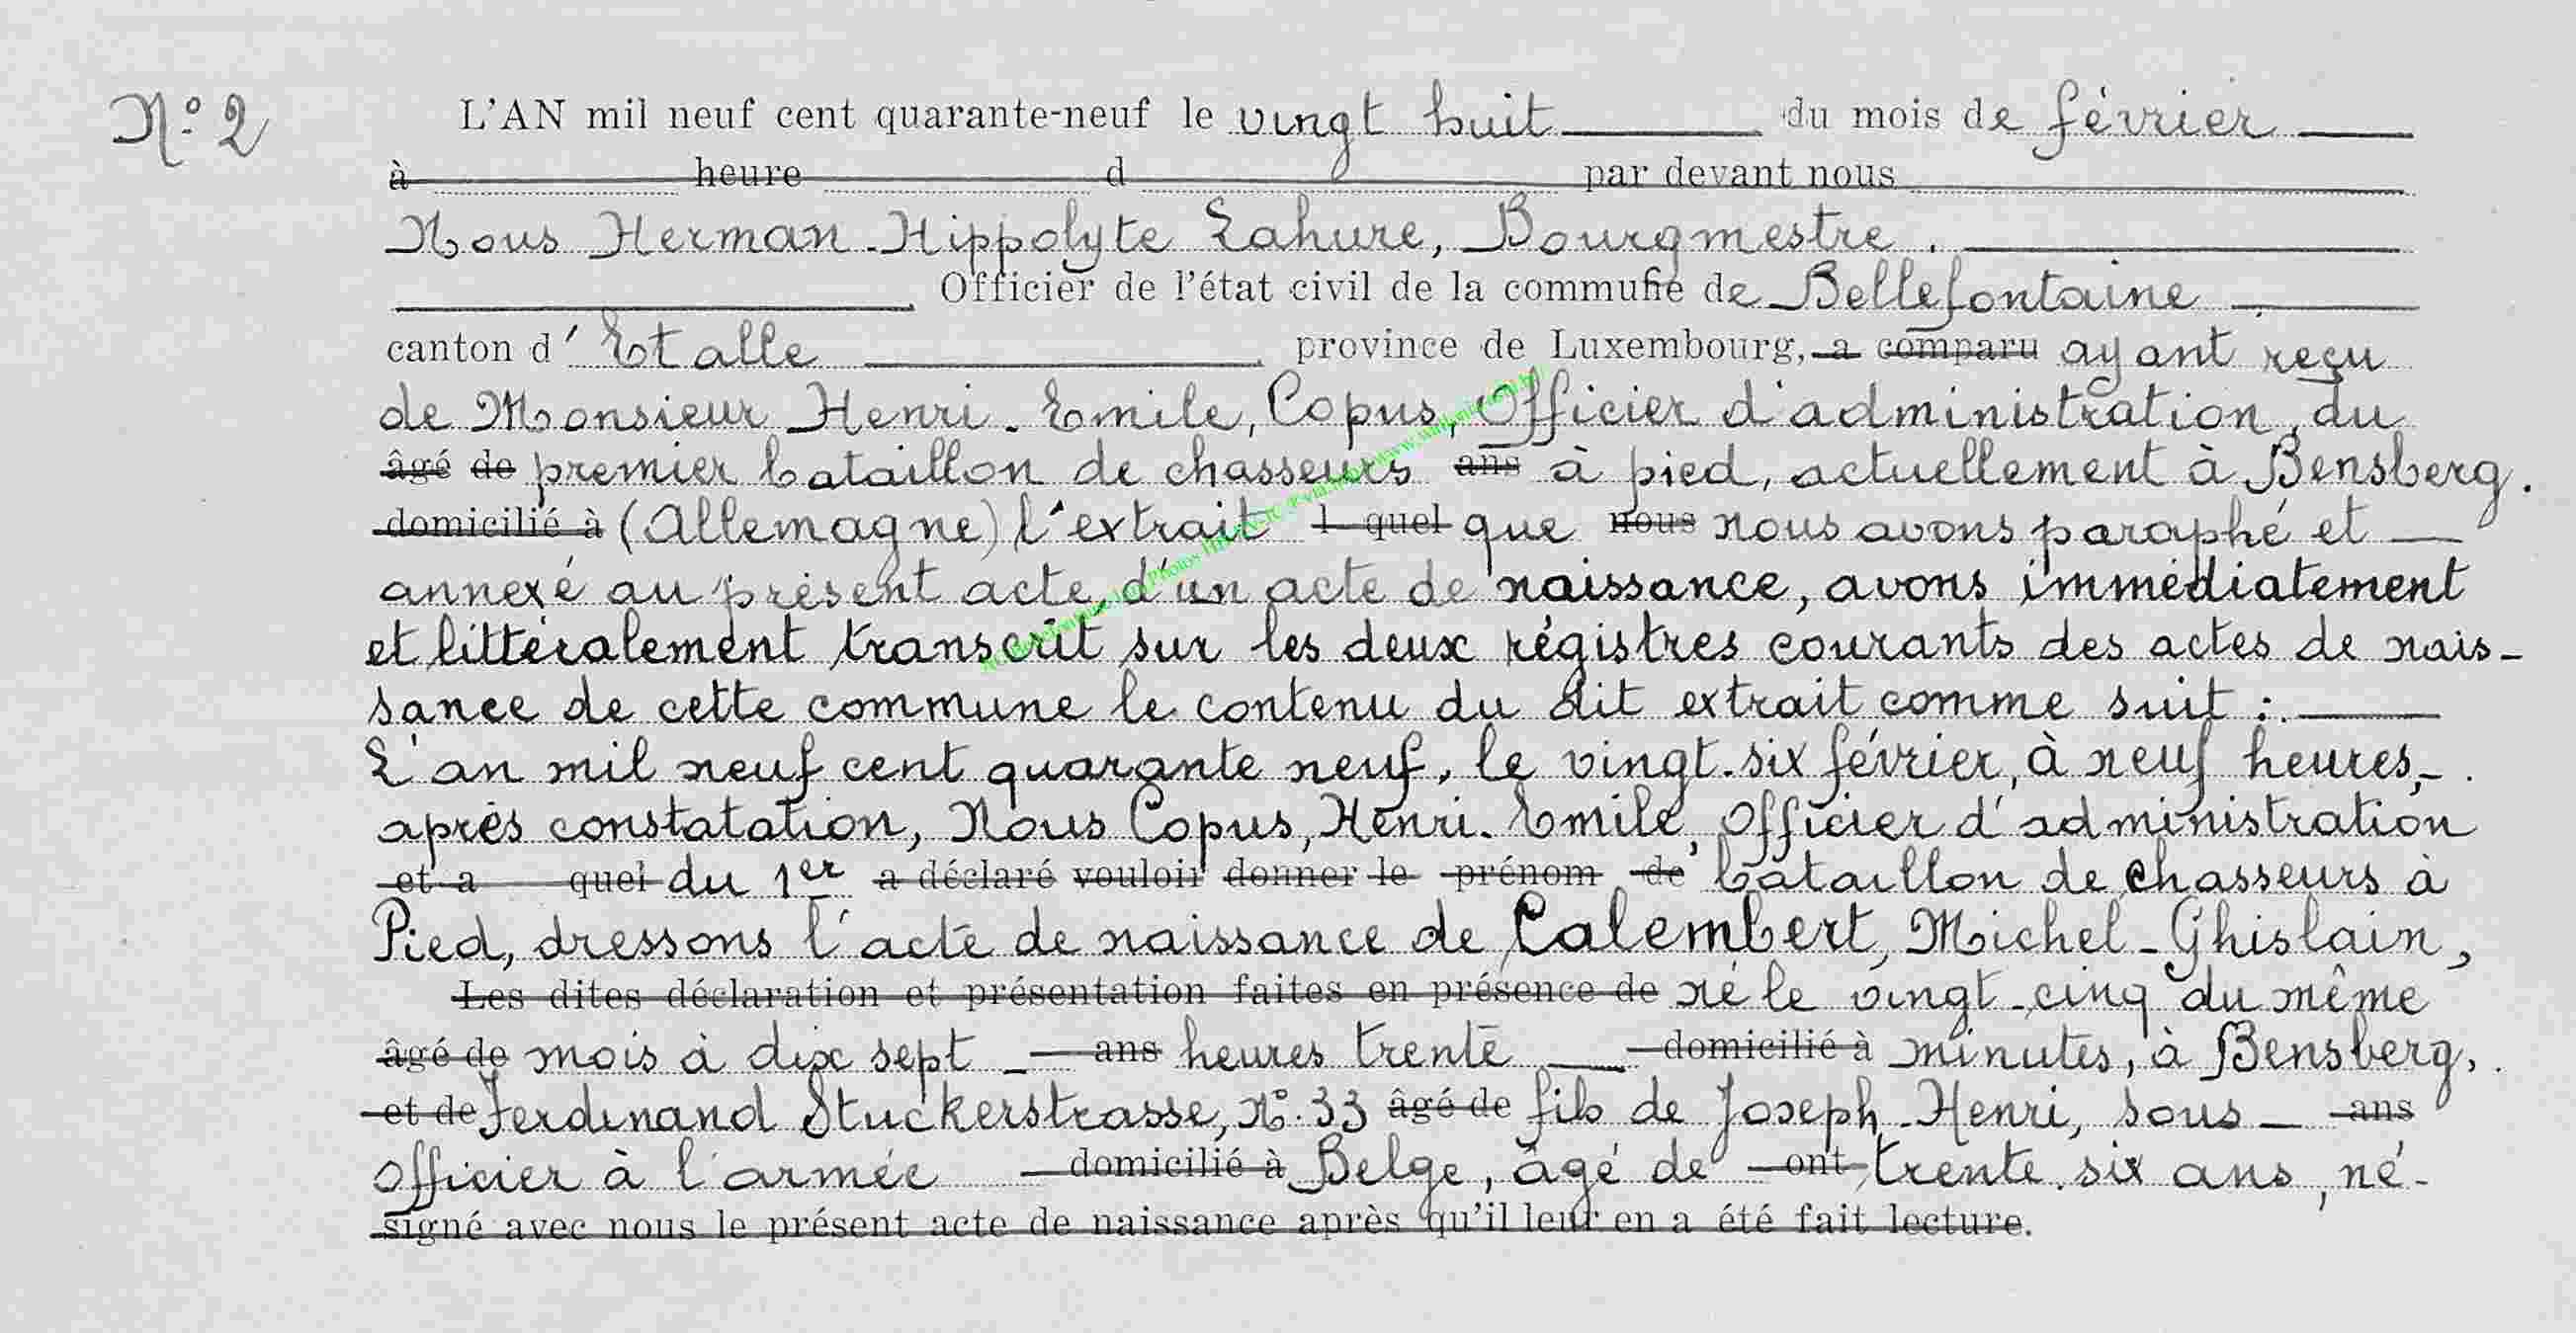 N° 2
L'AN mil neuf cent quarante-neuf le vingt huit du mois de février
à heure d par devant nous
Nous Herman-Hippolyte Lahure, Bourgmestre.
Officier de l'état civil de la commune de Bellefontaine
canton d'Etalle province de Luxembourg, a comparu ayant reçu
de Monsieur Henri-Emile, Copus, Officier d'administration, du
âgé de premier bataillon de chasseurs ans à pied, actuellement à Bensberg.
domicilié à (Allemagne) l'extrait l quel que nous nous avons paraphé et
annexé au présent acte, d'un acte de naissance, avons immédiatement
et littéralement transcrit sur les deux régistres courants des actes de nais-
sance de cette commune le contenu du dit extrait comme suit :
L'an mil neuf cent quarante neuf, le vingt-six février, à neuf heures,
après constatation, Nous Copus, Henri-Emile, Officier d'administration
et a quel du 1er a déclaré vouloir donner le prénom de bataillon de chasseurs à
Pied, dressons l'acte de naissance de Calembert, Michel-Ghislain,
Les dites déclaration et présentation faites en présence de né le vingt-cinq du même
âgé de mois à dix sept ans heures trente domicilié à minutes, à Bensberg,
et de Ferdinand Stuckerstrasse, N° 33 âgé de fils de Joseph-Henri, sous ans
officier à l'armée domicilié à Belge, âgé de ont trente-six ans, né
signé avec nous le présent acte de naissance après qu'il leur en a été fait lecture.